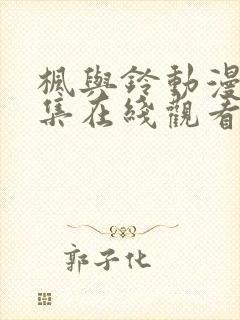 楓與鈴動漫
集在綫觀看
郭子化